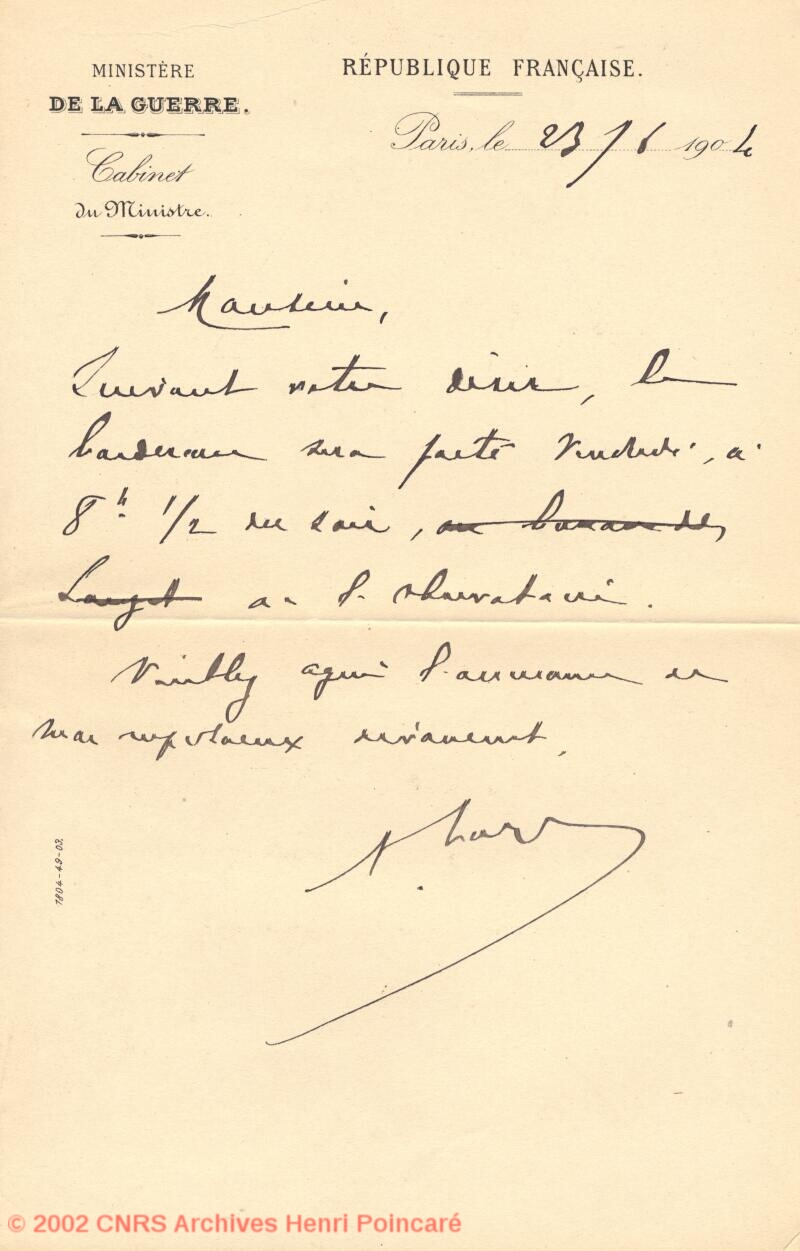 MINISTÈRE
DE LA GUERRE.
Cabinet
du Ministre.
RÉPUBLIQUE FRANÇAISE.
Paris, le 23/6 1904
Monsieur,
Suivant votre désir, le
bordereau sera porté Vendredi, à
8h 1/2 du soir, au bureau des
Longit à l'observatoire.
Veuillez agréer l'assurance de
mon respectueux dévouement.
1804-49-03.
© 2002 CNRS Archives Henri Poincaré